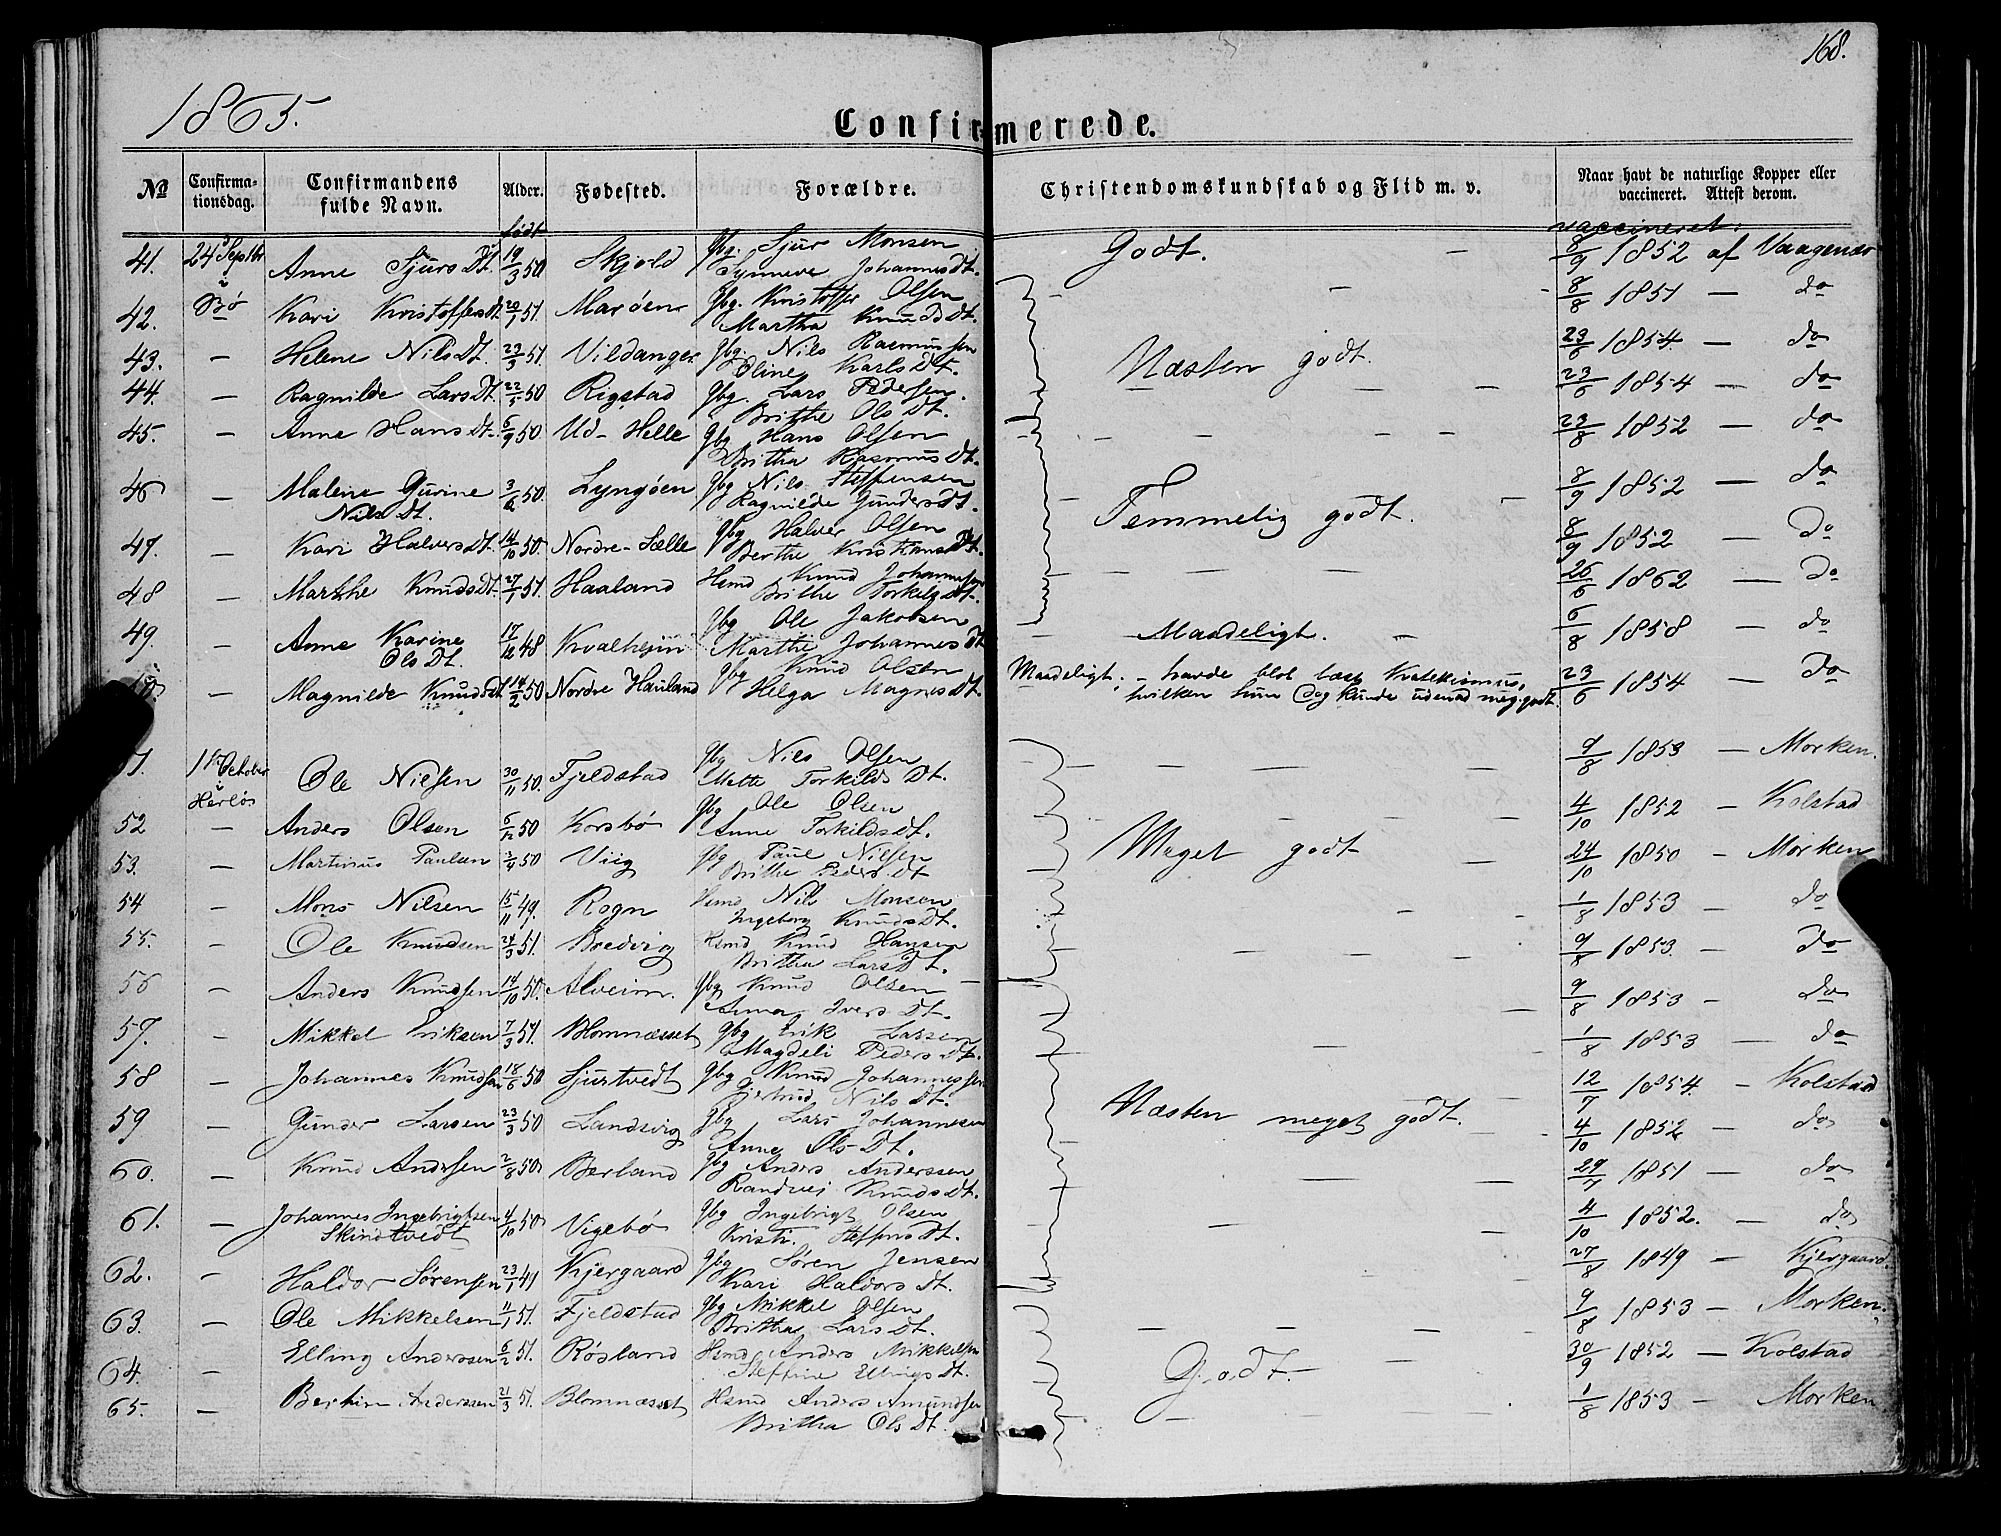 168.
1865.
Confirmerede.
No Confirmationsdag. Confirmandens fulde Navn. Alder. Fødested. Forældre. Christendomskundskab og Flid m. v. Naar havt de naturlige Kopper eller vaccineret. Attest derom.
født vaccineret:
41. 24 Septbr i Bø Anne Sjurs Dt. 19/3 50 Skjold Gbg. Sjur Monsen Synneve Johannes Dt. Godt. — 8/9 1852 af Vaagenæs
42. Kari Kristoffers dt. 20/1 51. Marøen Gbg. Kristoffer Olsen Martha Knuds Dt. — — 8/8 1851 — do
43. — Helene Nils Dt. 51. Vildanger Gbg. Nils Rasmussen Oline Karls Dt. Næsten godt. 23/6 1854. — do
44. — Ragnilde Lars Dt. 22/5 50 Rigstad Gbg. Lars Pedersen. Brithe Ols Dt. — — 23/6 1854 — do
45. — Anne Hans Dt. 6/9 50 Ud-Helle Gbg Hans Olsen Britha Rasmus Dt. — — — — 23/8 1852 — do
46 — Malene Gurine Nils Dt. 50. Lyngøen Gbg Nils Steffensen Ragnilde Gunders Dt. Temmelig godt. — 8/9 1852 — do
47. — Kari Halvers Dt. 14/10 50. Nordre-Sælle Gbg Halver Olsen Berthe Kristians Dt. 8/9 1852 — Do
48 — Marthe Knuds Dt. 27/1 51. Haaland Hsmd Knud Johannesen Brithe Torkils Dt. — — — — 26/6 1862 — Do
49. — Anne Karine Ols Dt. 17/12 48 Kvalheim Gbg Ole Jakobsen Marthe Johannes Dt — Maadeligt. — 6/8 1858 — do
— Magnilde Knuds Dt 14/2 50 Nordre Hauland Gbg Knud Olsen Helga Magnes Dt. Maadeligt; — havde blot læst Katekismus, hvilken hun dog kunde udenad meg. godt. 23/6 1854 — Do
1ste October i Herlø Ole Nielsen 30/11 50. Fjeldstad Gbg Nils Olsen Mette Torkilds Dt. — — — — 9/8 1853 — Morken.
52 — Anders Olsen 6/12 50 Korsbø Gbg Ole Olsen Anne Torkilds Dt. — — — — 4/10 1852 — Kolstad
53. — Martinus Paulsen 3/4 50 Viig Gbg Paul Nilsen Brithe Peders Dt Meget godt — 24/10 1850 — Morken
54 — Mons Nilsen 15/11 49. Rogn Hsmd Nils Monsen Ingeborg Knuds Dt. — — 1/8 1853 — do
55. — Ole Knudsen 24/3 51. Bredvig Hsmd Knud Hansen Britha Lars Dt. — — — — 9/8 1853. — Do
56 — Anders Knudsen 14/10 50. Alveim. Gbg Knud Olsen — Anna Ivers Dt. — 9/8 1853 — do
57. — Mikkel Eriksen 7/3 51. Blomnæsset Gbg Erik Larsen Magdeli Peders Dt. — — 1/8 1853 — do
58 — Johannes Knudsen 18/6 50 Sjurtvedt Gbg Knud Johannessen Gjertrud Nils Dt. — 12/7 1854. — Kolstad
59 — Gunder Larsen 23/3 50 Landsvig Gbg Lars Johannesen Anne Ols Dt. Næsten meget godt. — 4/10 1852 — do
60. — Knud Andersen 2/8 50 Berland Gbg Anders Anderssen Randvei Knuds Dt. — — 29/7 1851 — do
61. — Johannes Ingebrigtsen Skindtvedt 4/10 50 Vigebø Gbg Ingebrigt Olsen Kristi Steffens Dt. — — 4/10 1852. — do
62. — Haldor Sørensen 23/1 49 Kjergaard Gbg Søren Jensen Kari Haldors Dt. — — 27/8 1849 — Kjergaard.
63. — Ole Mikkelsen 11/1 51. Fjeldstad Gbg Mikkel Olsen Britha Lars Dt. — — — — 9/8 1853 — Morken.
64. — Elling Anderssen 6/2 51. Røsland Hsmd Anders Mikkelsen Steffine Ellings Dt. Godt. — — 30/9 1852 — Kolstad
65. — Bertin Anderssen 21/3 51. Blomnæsset Hsmd Anders Amundsen Britha Ols Dt. — — 1/8 1853 — Morken